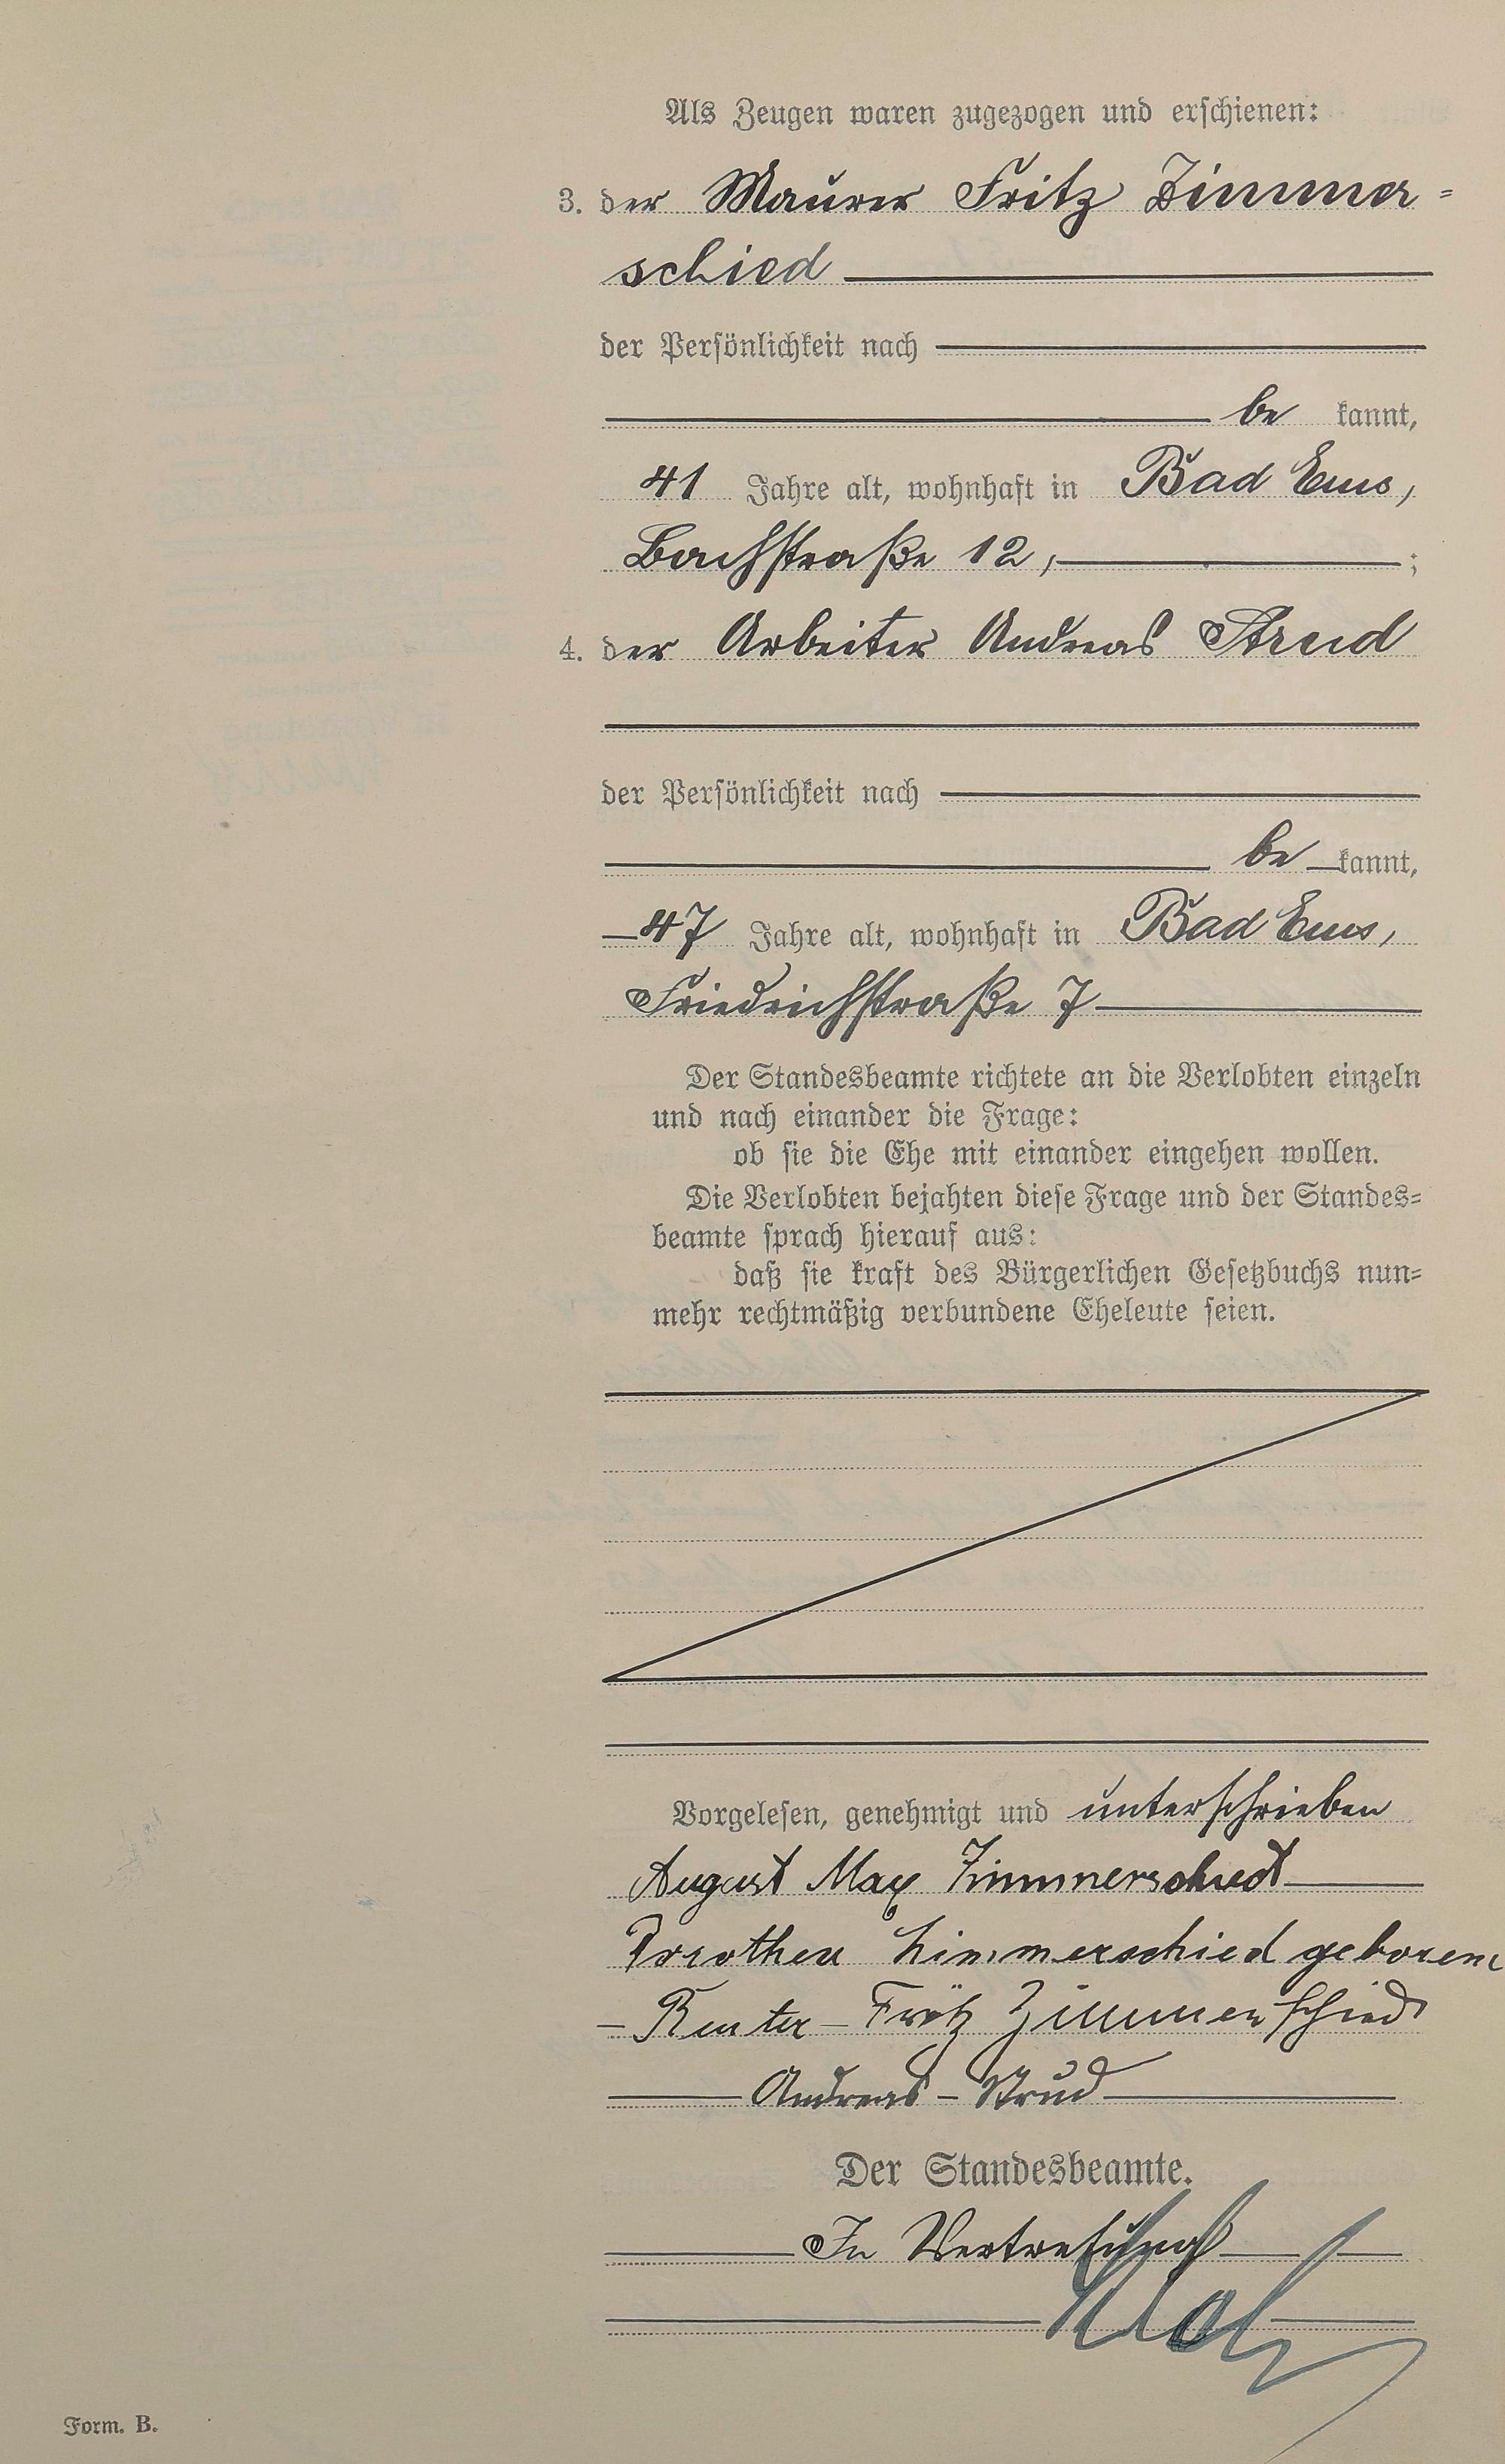 Als Zeugen waren zugezogen und erschienen:
3. der Maurer Fritz Zimmer=
schied
der Persönlichkeit nach
be kannt,
41 Jahre alt, wohnhaft in Bad Ems,
Bachstraße 12, ;
4. der Arbeiter Andreas Strud
der Persönlichkeit nach
be kannt,
47 Jahre alt, wohnhaft in Bad Ems,
Friedrichstraße 7
Der Standesbeamte richtete an die Verlobten einzeln
und nach einander die Frage:
ob sie die Ehe mit einander eingehen wollen.
Die Verlobten bejahten diese Frage und der Standes=
beamte sprach hierauf aus:
daß sie kraft des Bürgerlichen Gesetzbuchs nun=
mehr rechtmäßig verbundene Eheleute seien.
Vorgelesen, genehmigt und unterschrieben
August Max Zimmerschied
Dorothea Zimmerschied geborene
Reuter - Fritz Zimmerschied
Andreas - Strud
Der Standesbeamte.
In Vertretung
Form. B.